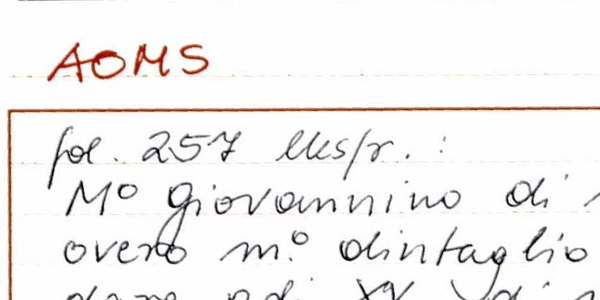 AOMS
fol. 257 lks/r. :
Mo giovannino di
overo m.o dintaglio